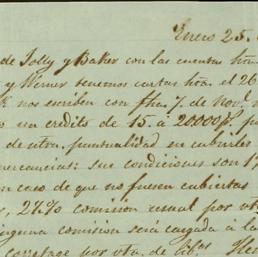 Enero 25.
de Jolly y Baker con las cuentas hta.
y Werner tenemos cartas hta. el 26
nos escriben con fha. 7. de Nov.
un credito de 15 a 20.000p.
de otra puntualidad en cubrirles
mercancias: sus condiciones son 1
en caso de que no fuesen cubiertas
, 2½% comision usual por vta.
ninguna comision será cargada á la
corretage por vta. de